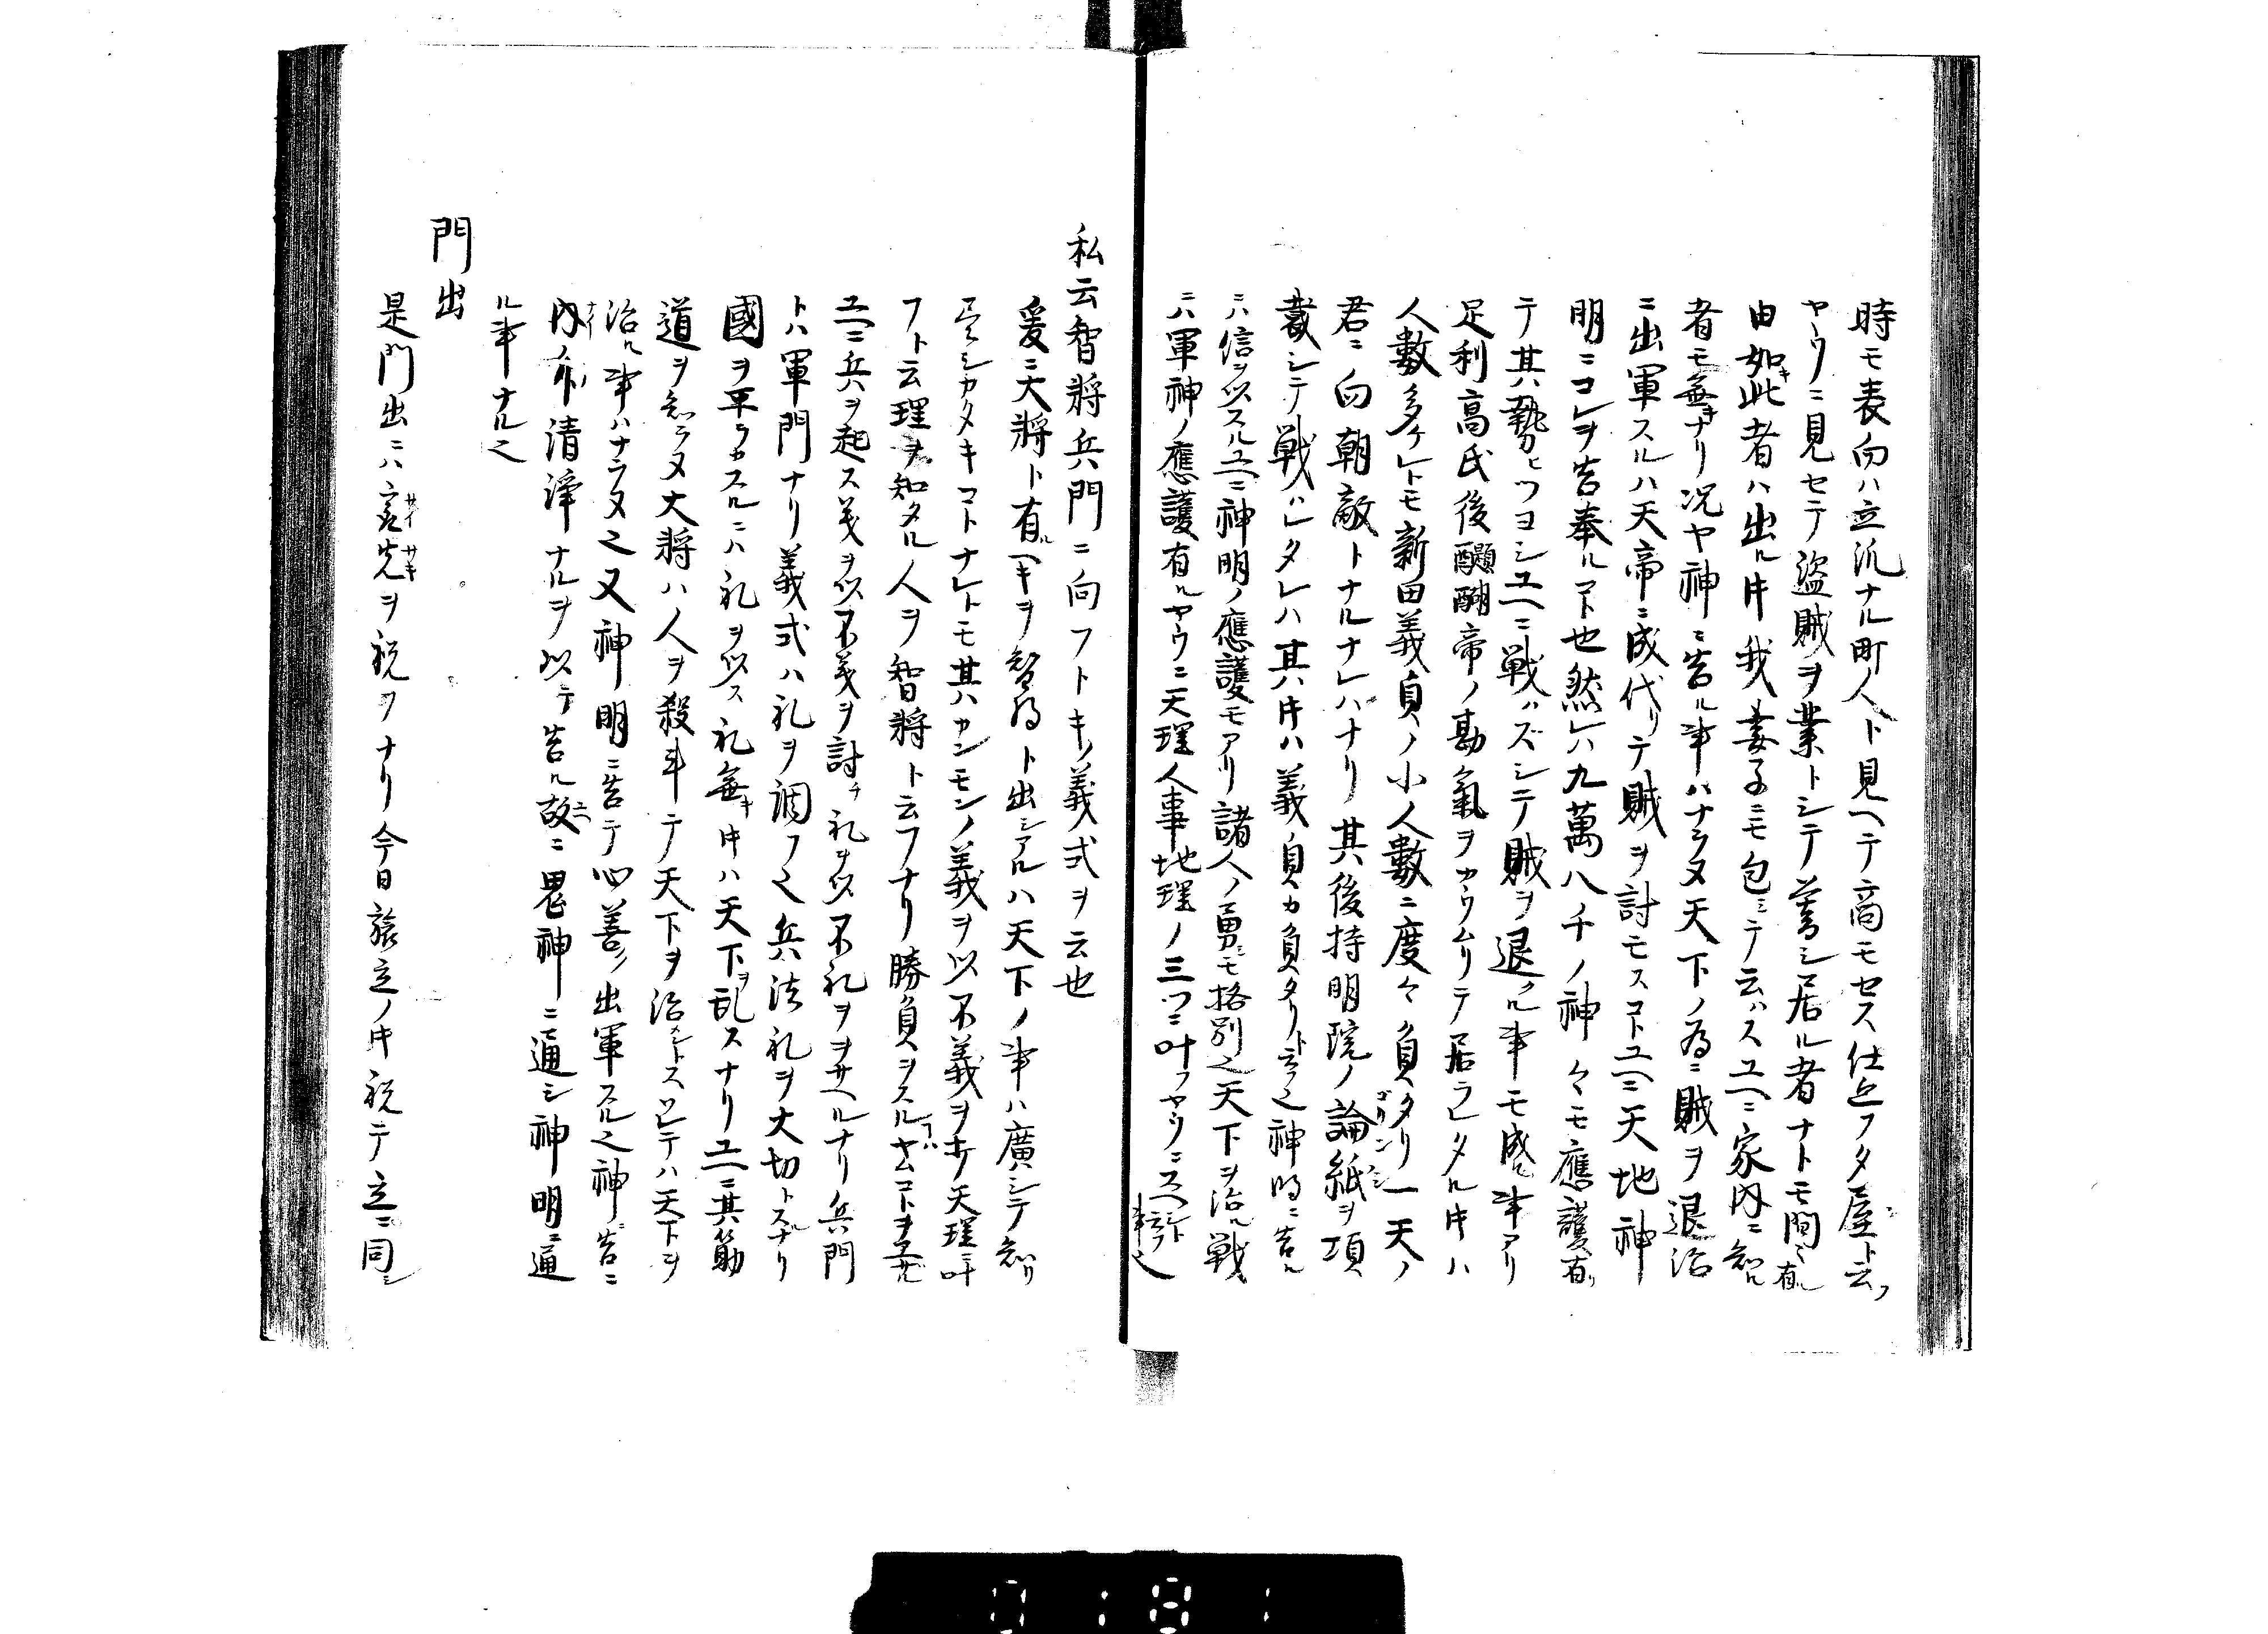 時モ表向ハ立派ナル町人ト見ヘテ商モセス仕立フタ屋ト云フ
ヤウニ見セテ盗賊ヲ業トシテ蓄シ居ル者ナトモ間ミ有ル
由如キ此者ハ出ル𪜈我妻子ニモ包ミテ云ハスユヘニ家内ニ知ル
者モ無キナリ況ヤ神ニ告ル事ハナラヌ天下ノ為ニ賊ヲ退治
ニ出軍スルハ天帝ニ成代リテ賊ヲ討モスコトユヘニ天地神
明ニコレヲ告奉ルコト也然レハ九萬八千ノ神々モ應護有リ
テ其勢ヒツヨシユヘニ戦ハズシテ賊ヲ退クル事モ成ル事アリ
足利高氏後醍醐帝ノ勘氣ヲカウムリテ居ラレタル𪜈ハ
人數多ケレトモ新田義貞ノ小人數ニ度々負タリ一天ノ
君ニ向朝敵トナルナレハナリ其後持明院ノ論紙ヲ項
戴シテ戦ハレタレハ其𪜈ハ義貞カ負タリト云フ之神明ニ告ル
ニハ信ヲ以スルユヘニ神明ノ應護モアリ諸人ノ勇ミモ格別之天下ヲ治ル戦
ニハ軍神ノ應護有ルヤウニ天理人事地理ノ三ツニ叶フヤウニスヘシト云フ事之
私云智將兵門ニ向フトキノ義式ヲ云也
爰ニ大將ト有ルヘキヲ智將ト出シアルハ天下ノ事ハ廣シテ知リ
尽シカタキコトナレトモ其ハカンモンノ義ヲ以不義ヲ討ノ天理ニ叶
フト云理ヲ知タル人ヲ智將ト云フナリ勝負ヲスルコトハヤムコトヲヱサル
ユヘニ兵ヲ起ス義ヲ以不義ヲ討チ礼ヲ以不礼ヲヲサヘルナリ兵門
トハ軍門ナリ義式ハ礼ヲ調フ之兵法礼ヲ大切トスルナリ
國ヲ平ラカスルニハ礼ヲ以ス礼無キ𪜈ハ天下ヲ乱スナリユヘニ其筋
道ヲ知ラヌ大將ハ人ヲ殺テ天下ヲ治ントスレテハ天下ヲ
治ル事ハナラヌ之又神明ニ告テ心善ノ出軍スル之神ニ告ニ
内外清浄ナルヲ以テ告ル故ニ鬼神ニ通シ神明ニ通
ル事ナル之
門出
是門出ニハ宰先ヲ祝フナリ今日旅立ノ𪜈祝テ立ニ同シ